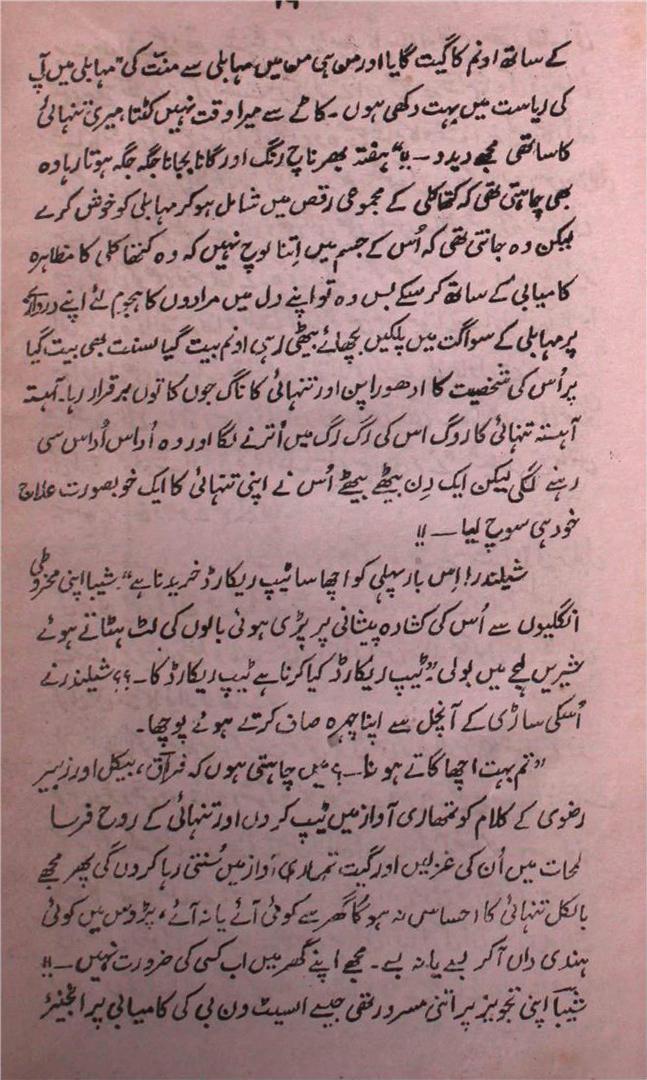 ۲۶
کے ساتھ اونم کا گیت گایا اور من ہی من میں مہابلی سے منّت کی "مہابلی میں آپ
کی ریاست میں بہت دکھی ہوں۔ کاٹے سے میرا وقت نہیں کٹتا، میری تنہائی
کا ساتھی مجھے دیدو۔۔!!" ہفتہ بھر ناچ رنگ اور گانا بجانا جگہ جگہ ہوتا رہا وہ
بھی چاہتی تھی کہ کتھاکلی کے مجموعی رقص میں شامل ہو کر مہابلی کو خوش کرے
لیکن وہ جانتی تھی کہ اُس کے جسم میں اِتنا لوچ نہیں کہ وہ کتھاکلی کا مظاہرہ
کامیابی کے ساتھ کر سکے بس وہ تو اپنے دل میں مرادوں کا ہجوم لئے اپنے دروازے
پر مہابلی کے سواگت میں پلکیں بچھائے بیٹھی رہی اونم بیت گیا بسنت بھی بیت گیا
پر اُس کی شخصیت کا ادھورا پن اور تنہائی کا ناگ جوں کا توں برقرار رہا۔ آہستہ
آہستہ تنہائی کا روگ اس کی رگ رگ میں اُترنے لگا اور وہ اُداس اُداس سی
رہنے لگی لیکن ایک دِن بیٹھے بیٹھے اُس نے اپنی تنہائی کا ایک خوبصورت علاج
خود ہی سوچ لیا۔۔!!
شیلندر! اِس بار پہلی کو اچھا سا ٹیپ ریکارڈ خریدنا ہے"۔ شیبا اپنی مخروطی
انگلیوں سے اُس کی کشادہ پیشانی پر پڑی ہوئی بالوں کی لٹ ہٹاتے ہوئے
شیریں لہجے میں بولی "ٹیپ ریکارڈ کیا کرنا ہے ٹیپ ریکارڈ کا۔؟؟ شیلندر نے
اُسکی ساڑی کے آنچل سے اپنا چہرہ صاف کرتے ہوئے پوچھا۔
"تم بہت اچھا گاتے ہو نا۔؟ میں چاہتی ہوں کہ فراق، بیکل اور زبیر
رضوی کے کلام کو تمھاری آواز میں ٹیپ کر دوں اور تنہائی کے روح فرسا
لمحات میں اُن کی غزلیں اور گیت تمہاری آواز میں سُنتی رہا کروں گی پھر مجھے
بالکل تنہائی کا احساس نہ ہو گا گھر سے کوئی آئے یا نہ آئے، پڑوس میں کوئی
ہندی داں آکر بسے یا نہ بسے۔ مجھے اپنے گھر میں اب کسی کی ضرورت نہیں۔۔!!
شیبا اپنی تجویز پر اتنی مسرور تھی جیسے اسیٹ ون بی کی کامیابی پر انجنیئر